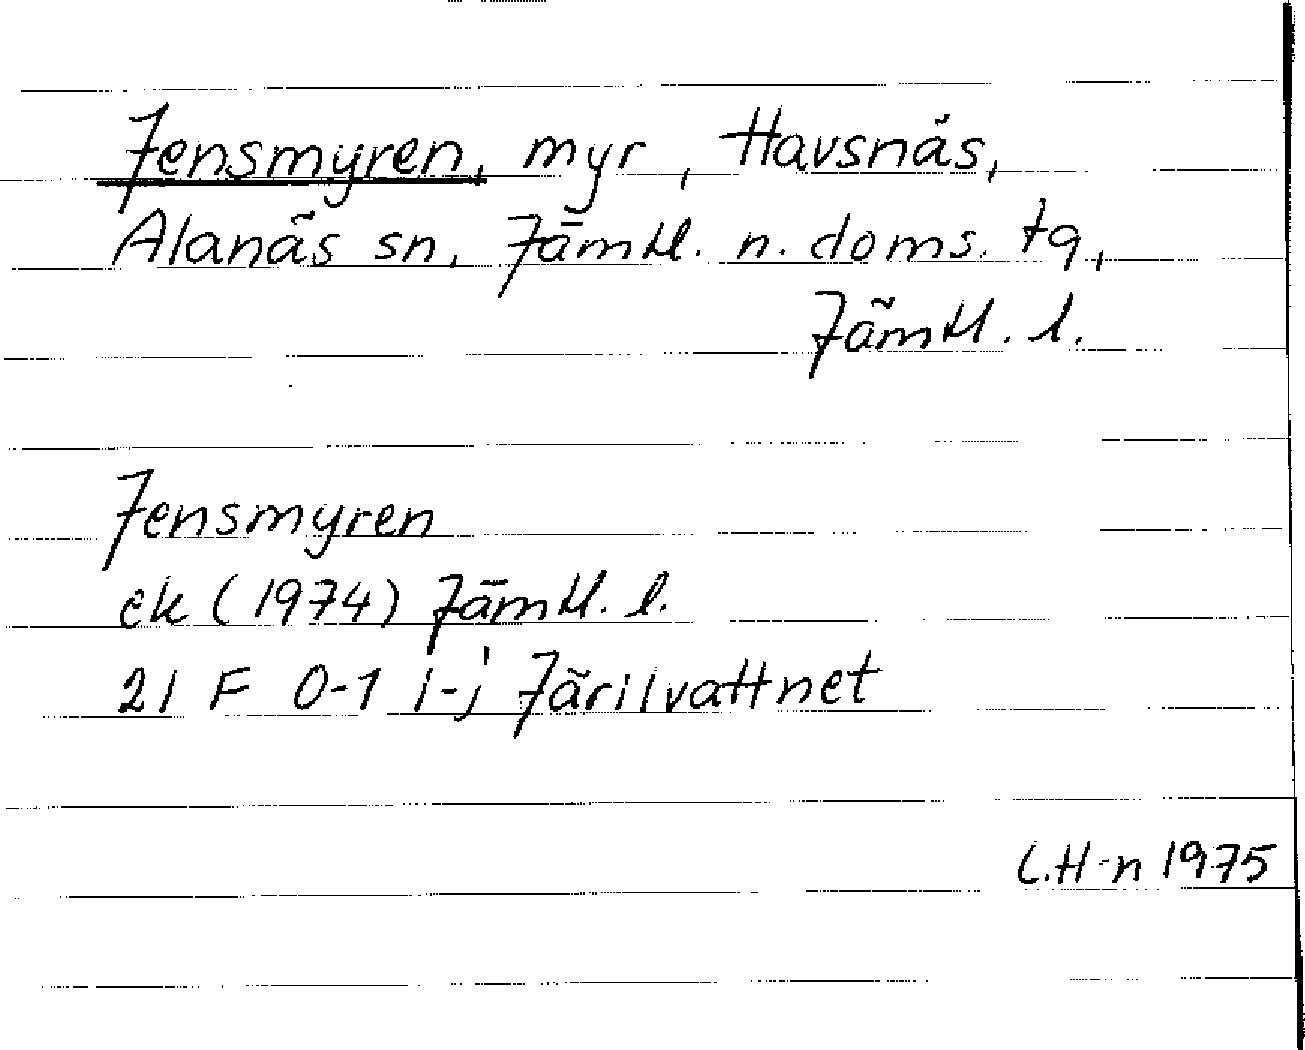 Jensmyren, myr, Havsnäs,
Alanäs sn, Jämtl. n. doms. tg,
Jämtl. l.
Jensmyren
ek (1974) Jämtl. l.
21 F 0-1 i-j Järilvattnet
C.H-n 1975